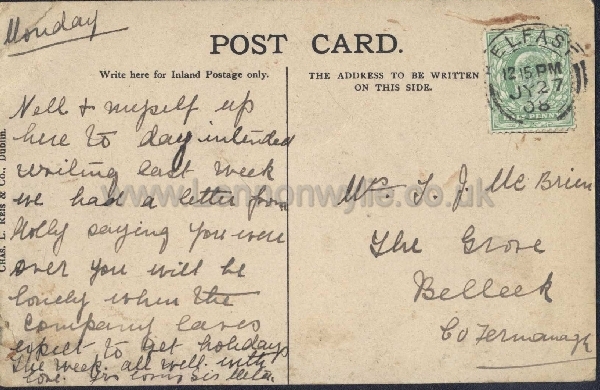 Monday
POST CARD.
Write here for Inland Postage only.
THE ADDRESS TO BE WRITTEN
ON THIS SIDE.
ELFAST
12 15 PM
JY 27
08
PENNY
Nell & myself up
here to day intended
writing last week
we had a letter from
Molly saying you were
over you will be
lonely when the
Company leaves
expect to get holidays
the week. all well. with
love.
T. J. McBrien
The Grove
Belleek
Co Fermanagh
CHAS. L. REIS & Co., Dublin.
www.lennonwylie.co.uk